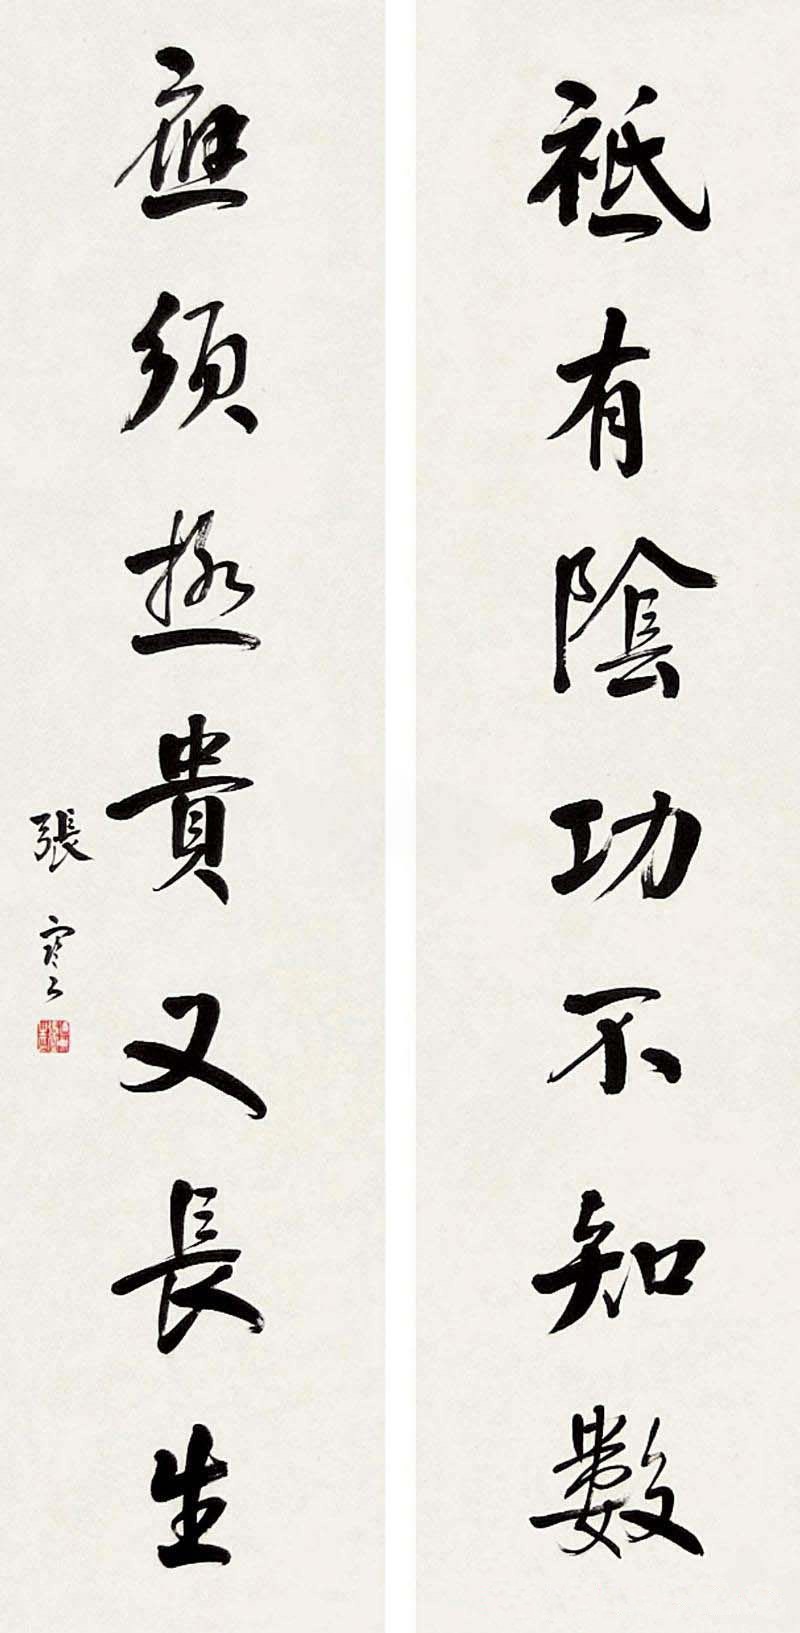 祗有陰功不知數
應須極貴又長生
張